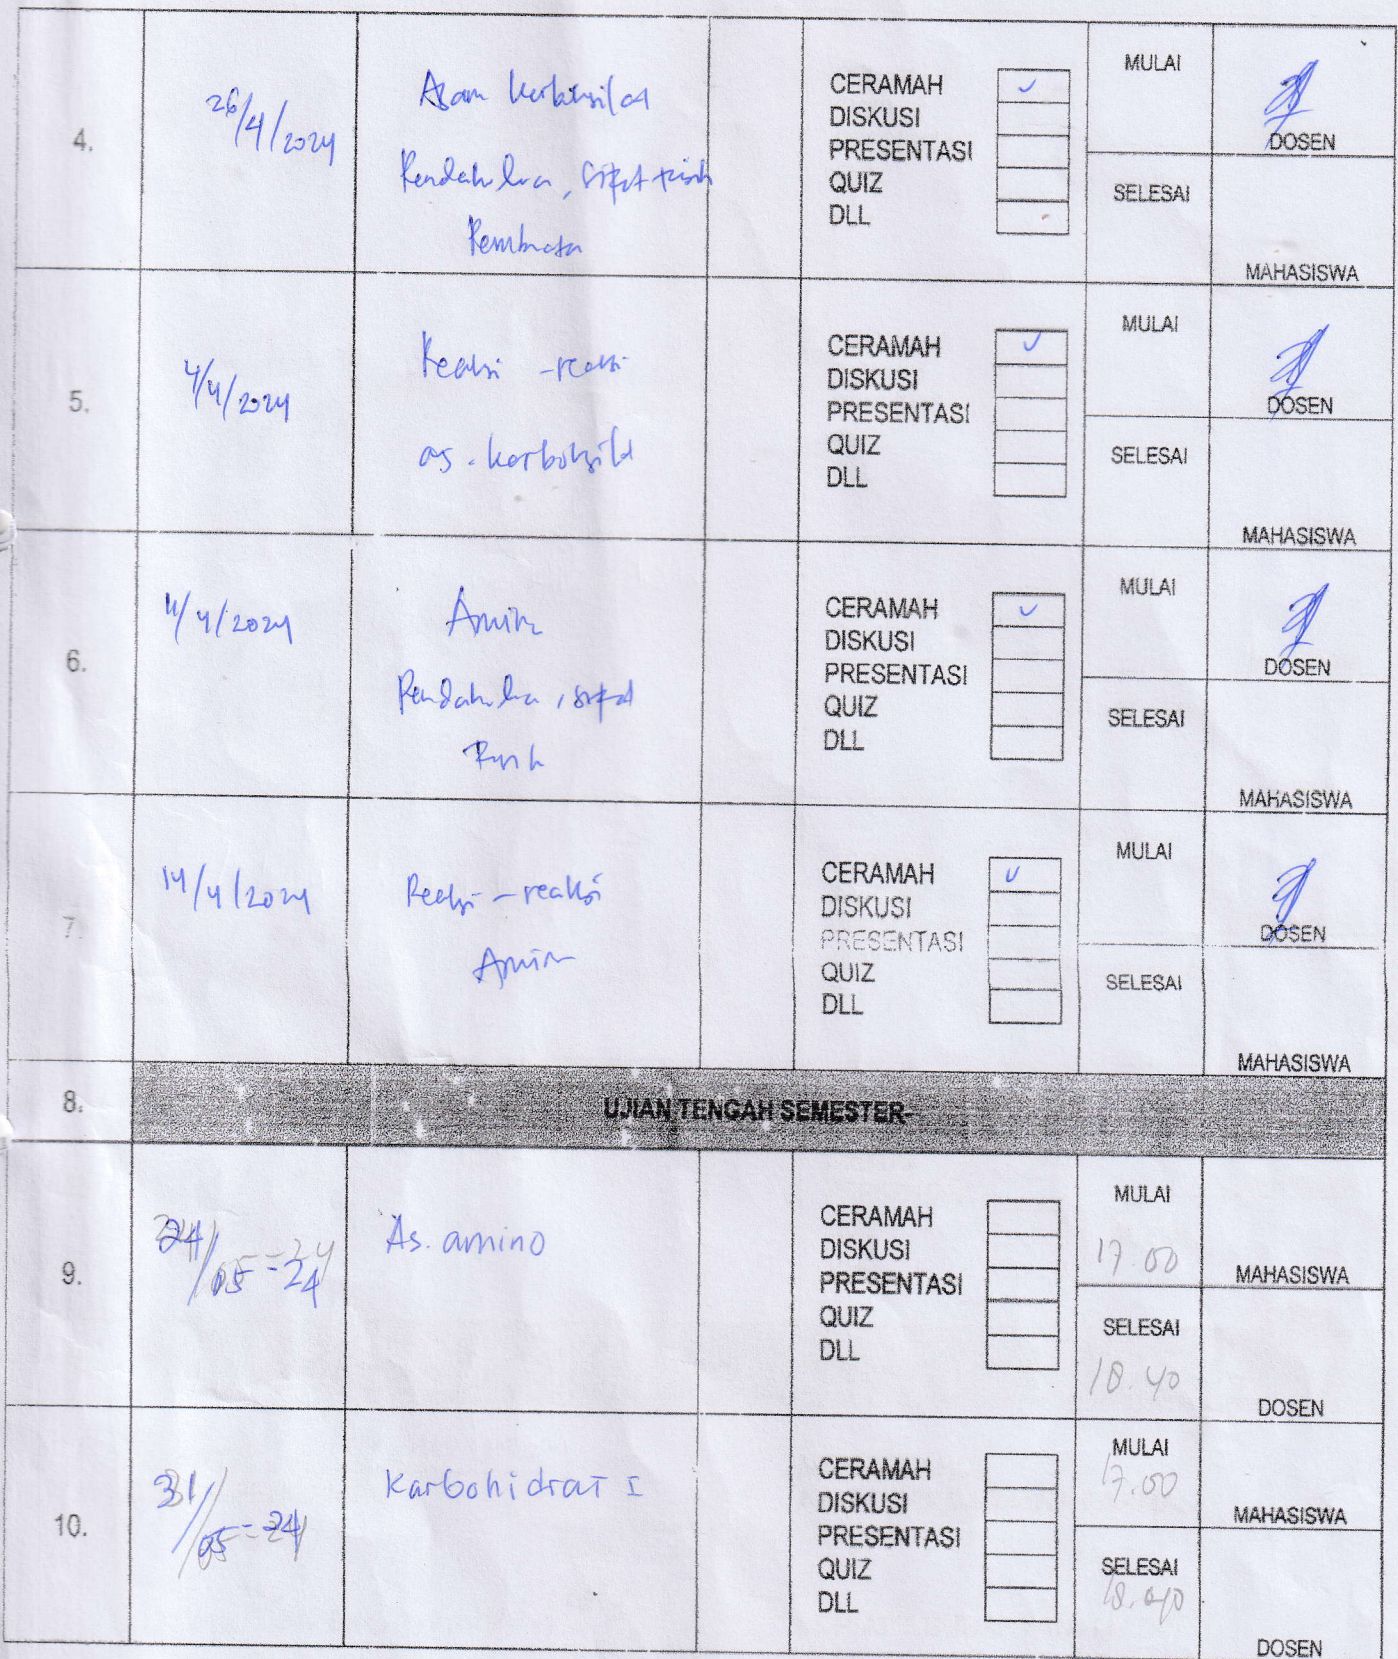 4.
26/4/2024
Asam karboksilat
Pendahulua, sifat fisik
Pembuata
CERAMAH ✓
DISKUSI
PRESENTASI
QUIZ
DLL
MULAI
SELESAI
DOSEN
MAHASISWA
5.
4/4/2024
Reaksi - reaksi
as. karboksilat
CERAMAH ✓
DISKUSI
PRESENTASI
QUIZ
DLL
MULAI
SELESAI
DOSEN
MAHASISWA
6.
11/4/2024
Amin
Pendahulua, sifat
Fisik
CERAMAH ✓
DISKUSI
PRESENTASI
QUIZ
DLL
MULAI
SELESAI
DOSEN
MAHASISWA
7.
14/4/2024
Reaksi - reaksi
Amin
CERAMAH ✓
DISKUSI
PRESENTASI
QUIZ
DLL
MULAI
SELESAI
DOSEN
MAHASISWA
8.
UJIAN TENGAH SEMESTER
9.
24/05-24
As. amino
CERAMAH
DISKUSI
PRESENTASI
QUIZ
DLL
MULAI
17.00
SELESAI
18.40
MAHASISWA
DOSEN
10.
31/05-24
Karbohidrat I
CERAMAH
DISKUSI
PRESENTASI
QUIZ
DLL
MULAI
17.00
SELESAI
18.40
MAHASISWA
DOSEN